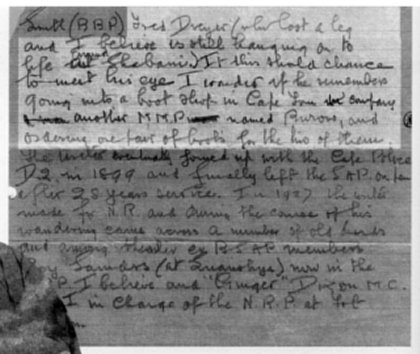 Smitt (BBP) Fred Dreyer (who lost a leg
and I believe is still hanging on to
life around Shabani. If this should chance
to meet his eye I wonder if he remembers
going into a boot shop in Cape Town in company
another M.M.P. named Burow, and
ordering one pair of boots for the two of them.
The writer eventually joined up with the Cape Police
D2 in 1899 and finally left the S.A.P. on
after 28 years service. In 1927 the writer
made for N.R. and during the course of his
wandering came across a number of old hands
and among these ex B.S.A.P members
Sanders (at ) now in the
I believe and "Ginger" Dixon M.C.
I in Charge of the N.R.P. at Fort